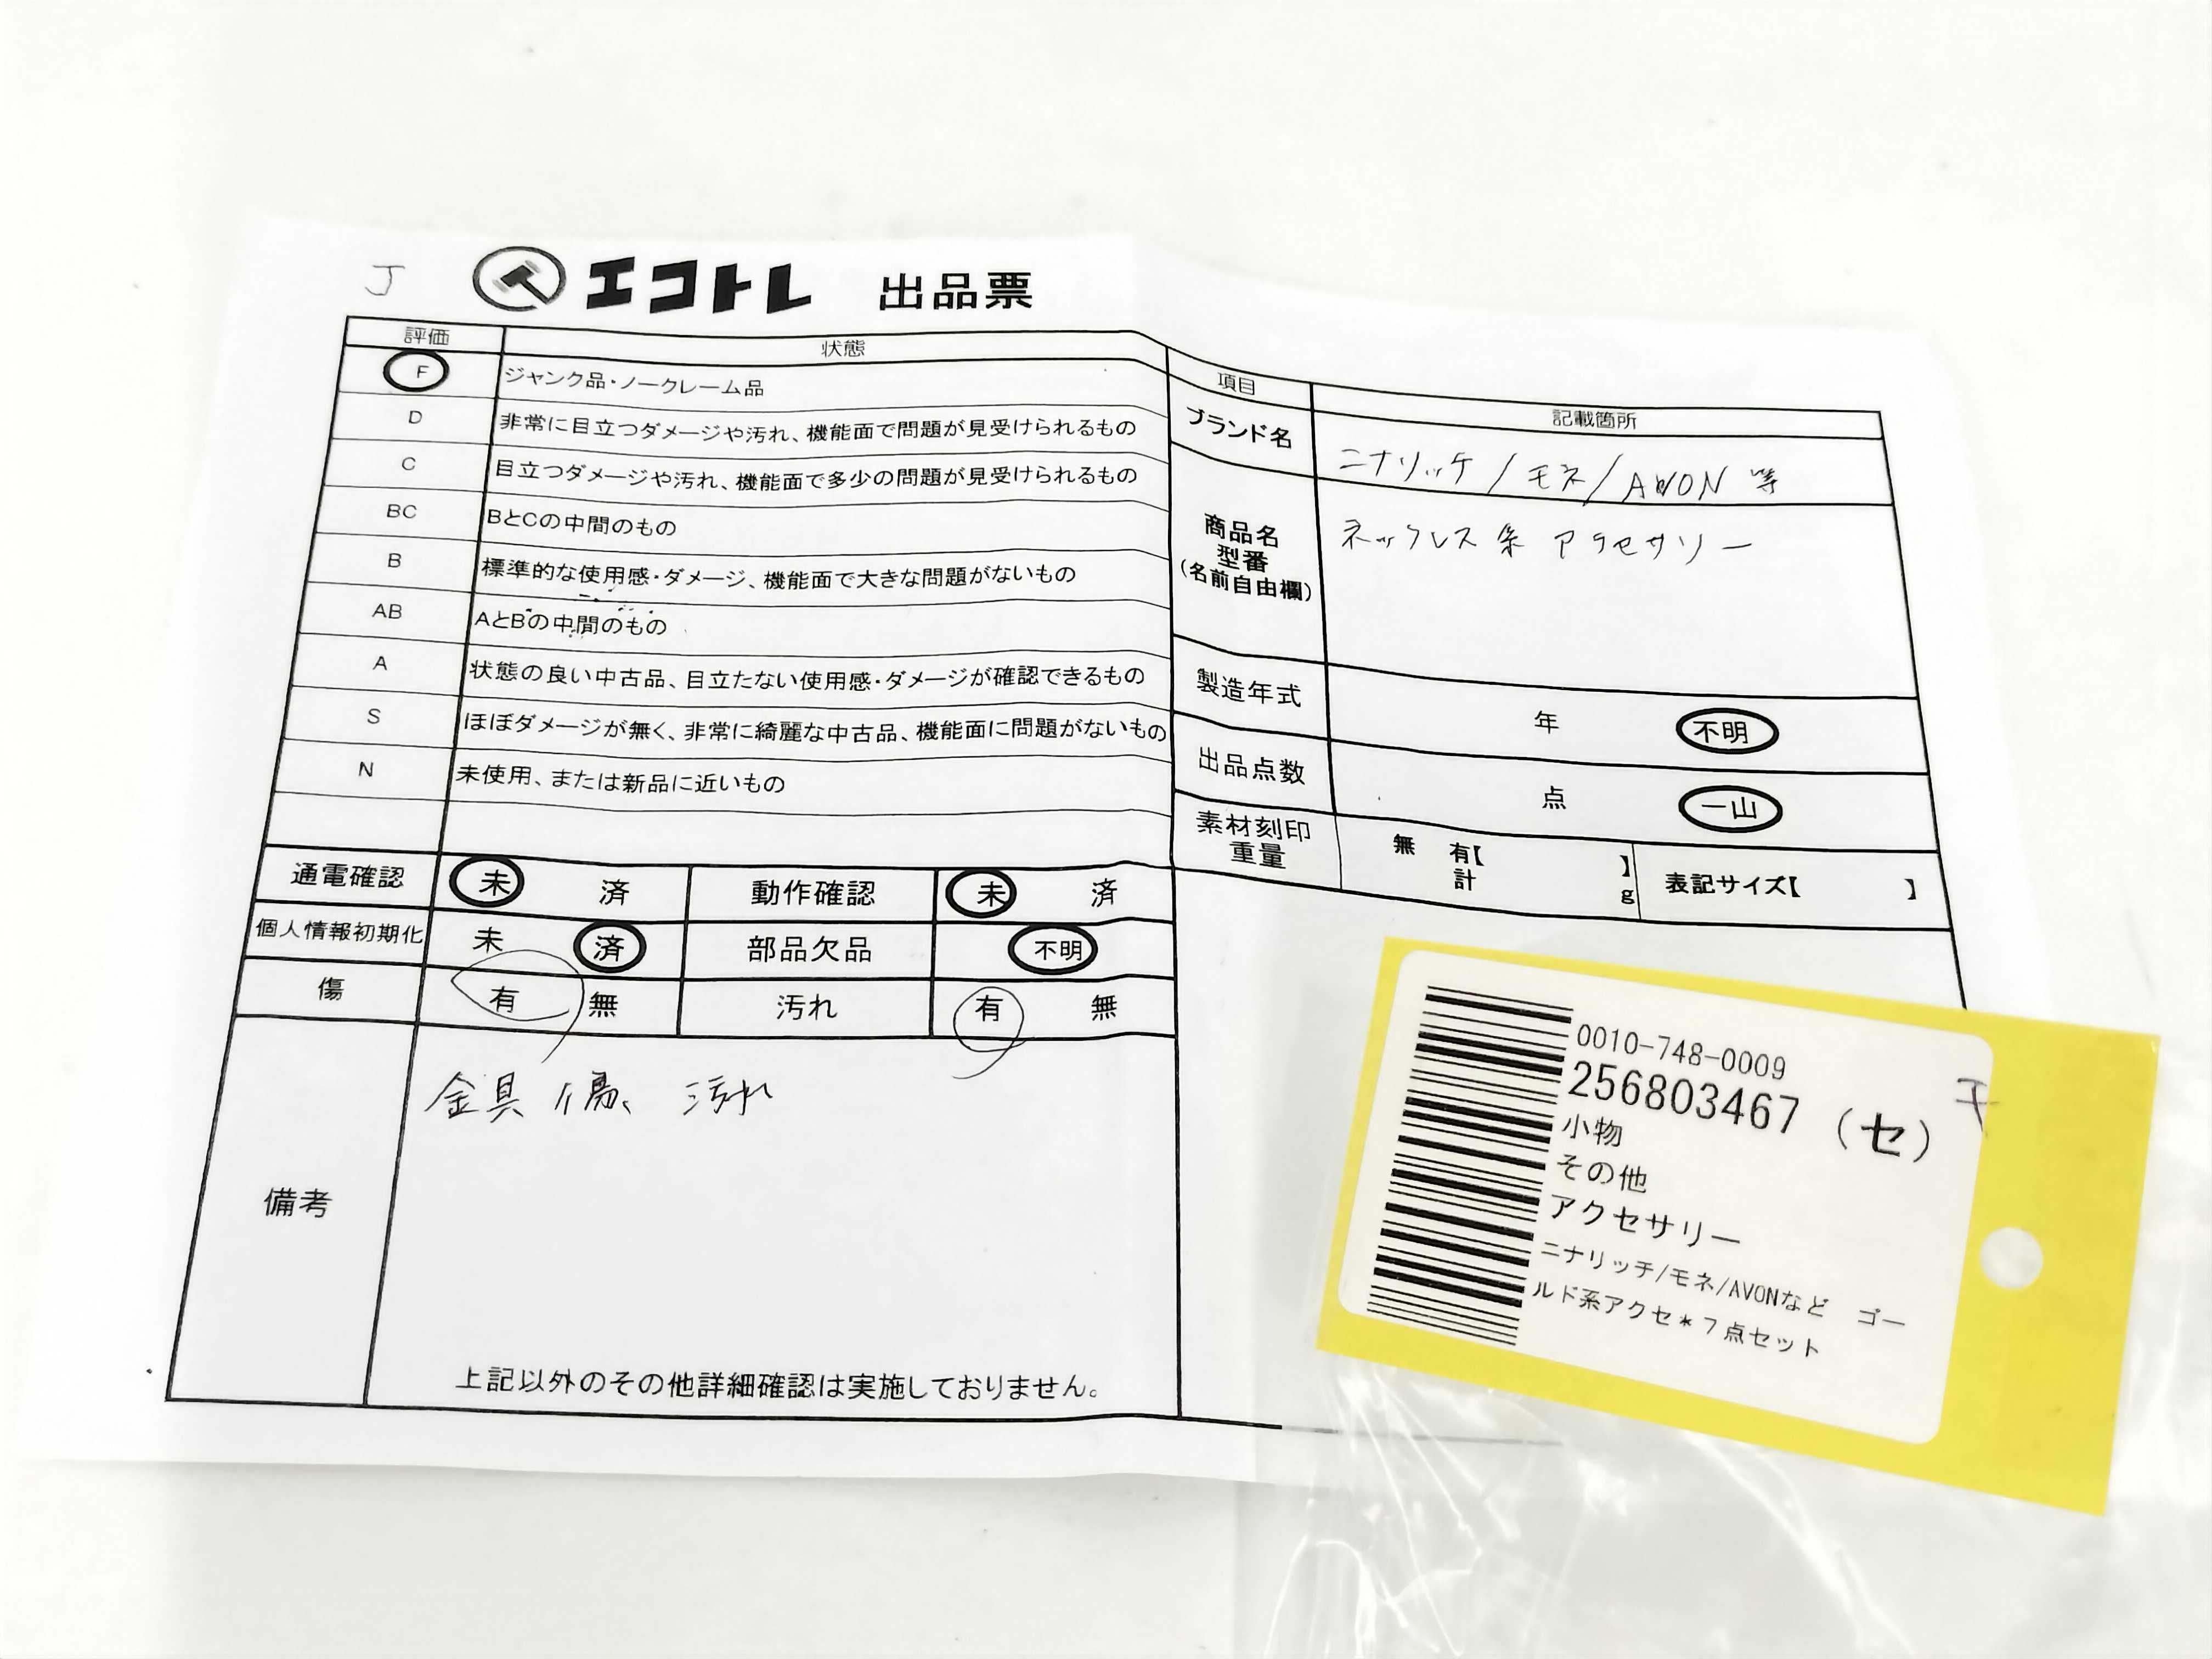 J
エコトレ 出品票
評価 状態
F ジャンク品・ノークレーム品
D 非常に目立つダメージや汚れ、機能面で問題が見受けられるもの
C 目立つダメージや汚れ、機能面で多少の問題が見受けられるもの
BC BとCの中間のもの
B 標準的な使用感・ダメージ、機能面で大きな問題がないもの
AB AとBの中間のもの
A 状態の良い中古品、目立たない使用感・ダメージが確認できるもの
S ほぼダメージが無く、非常に綺麗な中古品、機能面に問題がないもの
N 未使用、または新品に近いもの
通電確認 未 済 動作確認 未 済
個人情報初期化 未 済 部品欠品 不明
傷 有 無 汚れ 有 無
備考
金具 傷、汚れ
上記以外のその他詳細確認は実施しておりません。
項目 記載箇所
ブランド名 ニナリッチ/モネ/AVON 等
商品名
型番
(名前自由欄)
ネックレス系 アクセサリー
製造年式 年 不明
出品点数 点 一山
素材刻印
重量
無 有【 】
計 g
表記サイズ【 】
0010-748-0009
256803467 (セ)
小物
その他
アクセサリー
ニナリッチ/モネ/AVONなど ゴー
ルド系アクセ*7点セット